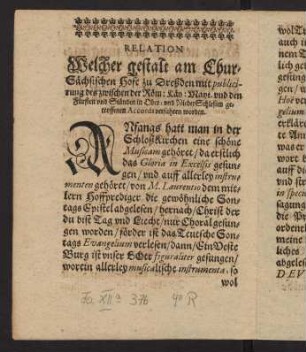 RELATION
Welcher gestalt am Chur-
Sächsischen Hofe zu Dreßden mit publici-
rung des zwischen der Röm: Käy: Mayt. vnd den
Fürsten vnd Ständen in Ober- vnd NiderSchlesien ge-
troffenen Accords verfahren worden.
ANfangs hatt man in der
Schloßkirchen eine schöne
Musicam gehöret / da erstlich
das Gloria in Excelsis gesun-
gen / vnd auff allerley instru-
menten gehöret / von M. Laurentio dem mit-
lern Hoffprediger die gewöhnliche Son-
tags Epistel abgelesen / hernach / Christ der
du bist Tag vnd Liecht / nur Choral gesun-
gen worden / förder ist das Teutsche Son-
tags Evangelium verlesen / dann / Ein Veste
Burg ist vnser GOtt figuraliter gesungen /
worein allerley musicalische instrumenta, so
wol